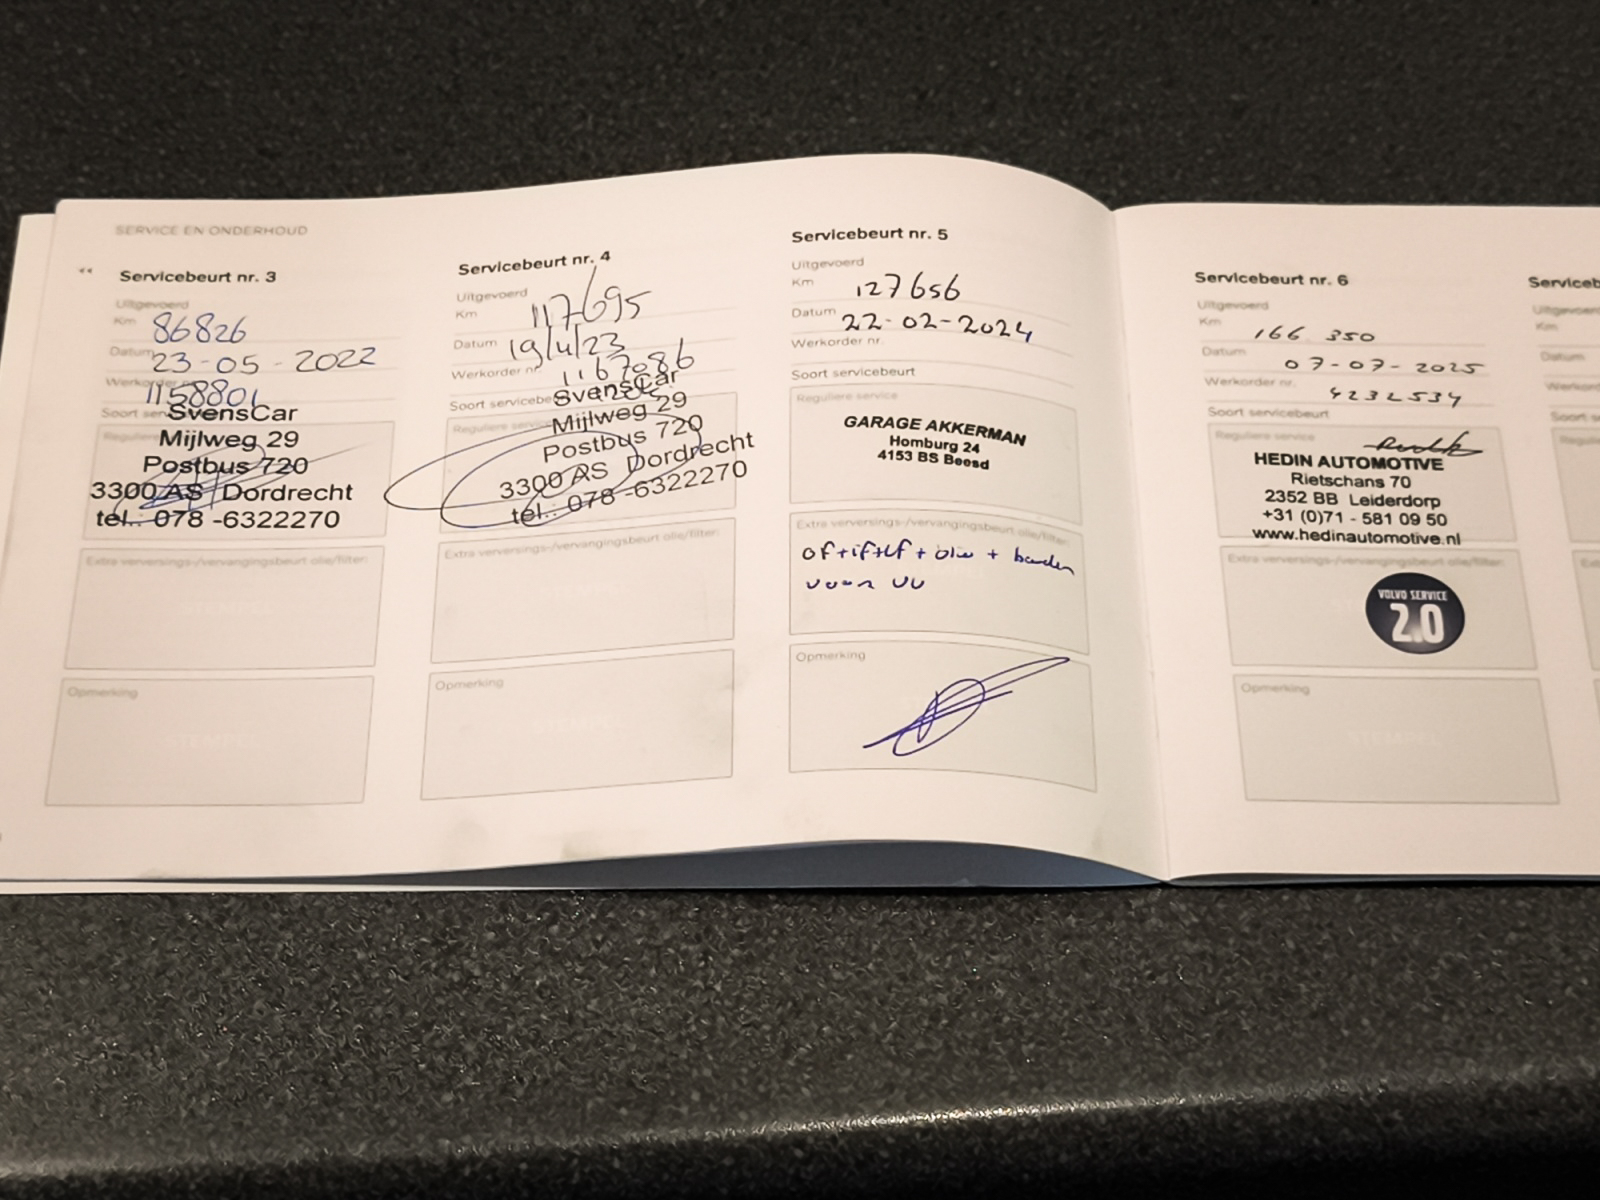 SERVICE EN ONDERHOUD
Servicebeurt nr. 3
Uitgevoerd
Km 86826
Datum 23-05-2022
Werkorder nr. 1158801
Soort
SvensCar
Mijlweg 29
Postbus 720
3300 AS Dordrecht
tel.: 078 -6322270
Extra verversings-/vervangingsbeurt olie/filter:
Opmerking
STEMPEL
Servicebeurt nr. 4
Uitgevoerd
Km 117695
Datum 19/4/23
Werkorder nr. 1167086
Soort servicebeurt
Reguliere service
SvensCar
Mijlweg 29
Postbus 720
3300 AS Dordrecht
tel.: 078 -6322270
Extra verversings-/vervangingsbeurt olie/filter:
STEMPEL
Opmerking
STEMPEL
Servicebeurt nr. 5
Uitgevoerd
Km 127656
Datum 22-02-2024
Werkorder nr.
Soort servicebeurt
Reguliere service
GARAGE AKKERMAN
Homburg 24
4153 BS Beesd
Extra verversings-/vervangingsbeurt olie/filter:
of+if+lf + olie + banden
voor vv
Opmerking
Servicebeurt nr. 6
Uitgevoerd
Km 166 350
Datum 07-07-2025
Werkorder nr. 4232534
Soort servicebeurt
Reguliere service
HEDIN AUTOMOTIVE
Rietschans 70
2352 BB Leiderdorp
+31 (0)71 - 581 09 50
www.hedinautomotive.nl
Extra verversings-/vervangingsbeurt olie/filter:
VOLVO SERVICE
2.0
Opmerking
STEMPEL
Serviceb
Uitgevoerd
Km
Datum
Werkorder
Soort s